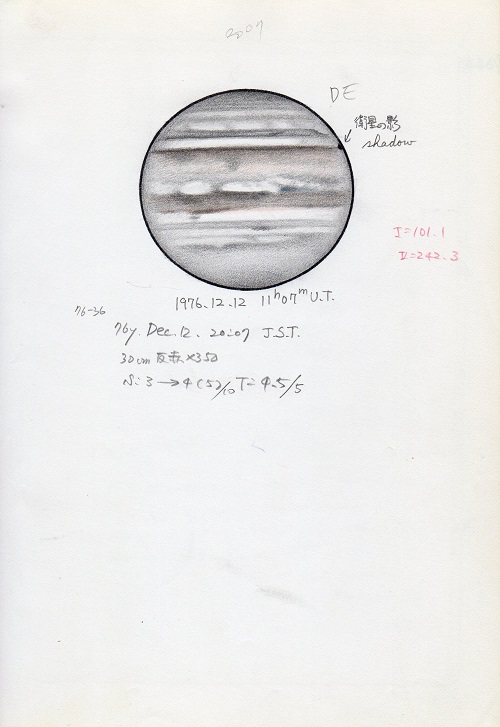 2007
DE
衛星の影
shadow
I=101.1
II=242.3
1976.12.12 11h07m U.T.
76-36
76y. Dec. 12. 20:07 J.S.T.
30cm 反赤 ×350
S: 3 → 4 (5)/10 T= 4.5/5